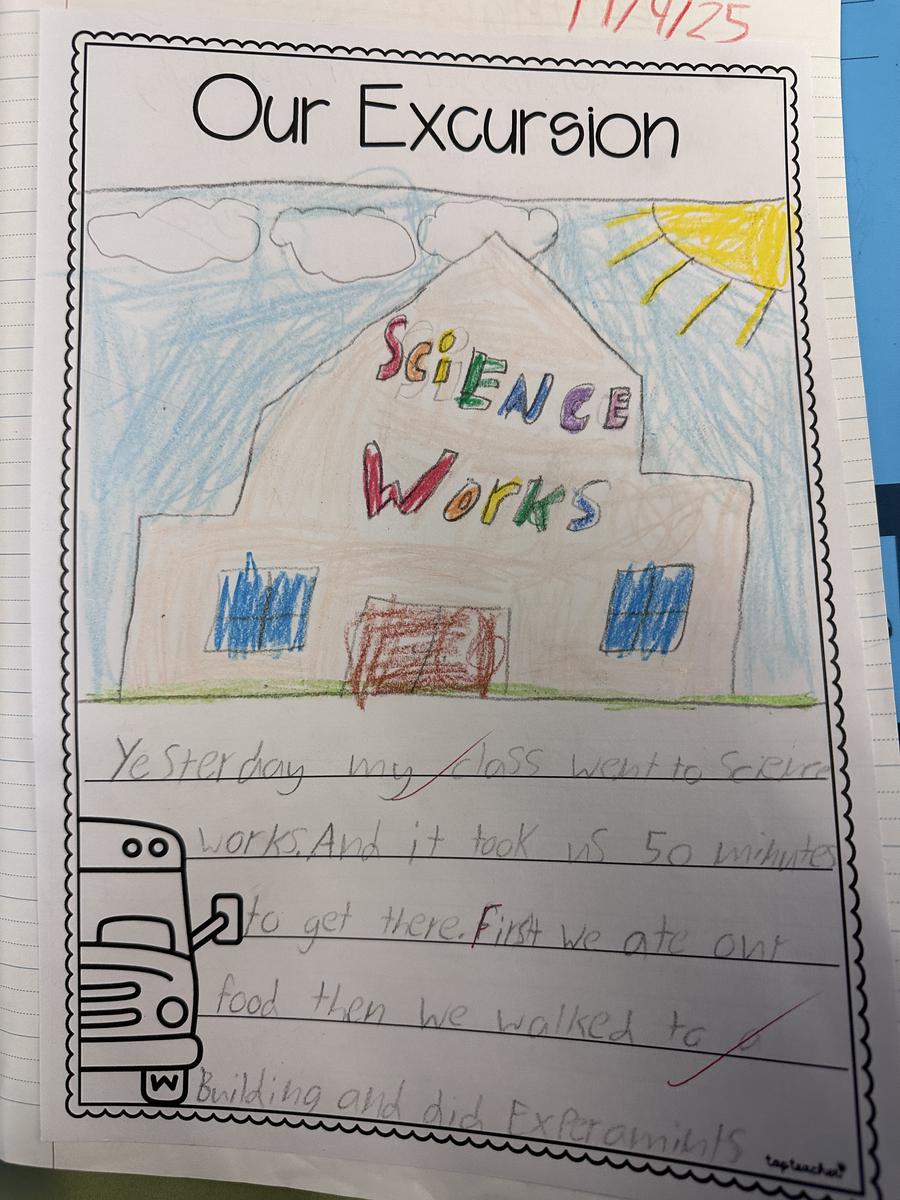 11/4/25
Our Excursion
SciENCE
Works
Yesterday my class went to Science
works. And it took us 50 minutes
to get there. First we ate our
food then we walked to a
Building and did Experamints
topteacher